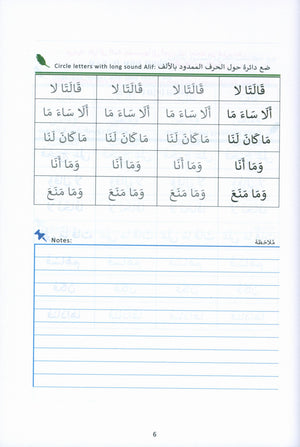 Circle letters with long sound Alif: ضع دائرة حول الحرف الممدود بالألف
قَالَتَا لَا قَالَتَا لَا قَالَتَا لَا قَالَتَا لَا
أَلَا سَاءَ مَا أَلَا سَاءَ مَا أَلَا سَاءَ مَا أَلَا سَاءَ مَا
مَا كَانَ لَنَا مَا كَانَ لَنَا مَا كَانَ لَنَا مَا كَانَ لَنَا
وَمَا أَنَا وَمَا أَنَا وَمَا أَنَا وَمَا أَنَا
وَمَا مَنَعَ وَمَا مَنَعَ وَمَا مَنَعَ وَمَا مَنَعَ
Notes: مُلاحَظة:
6